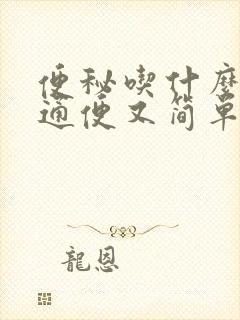 便秘喫什麼
通便又简单
龍恩